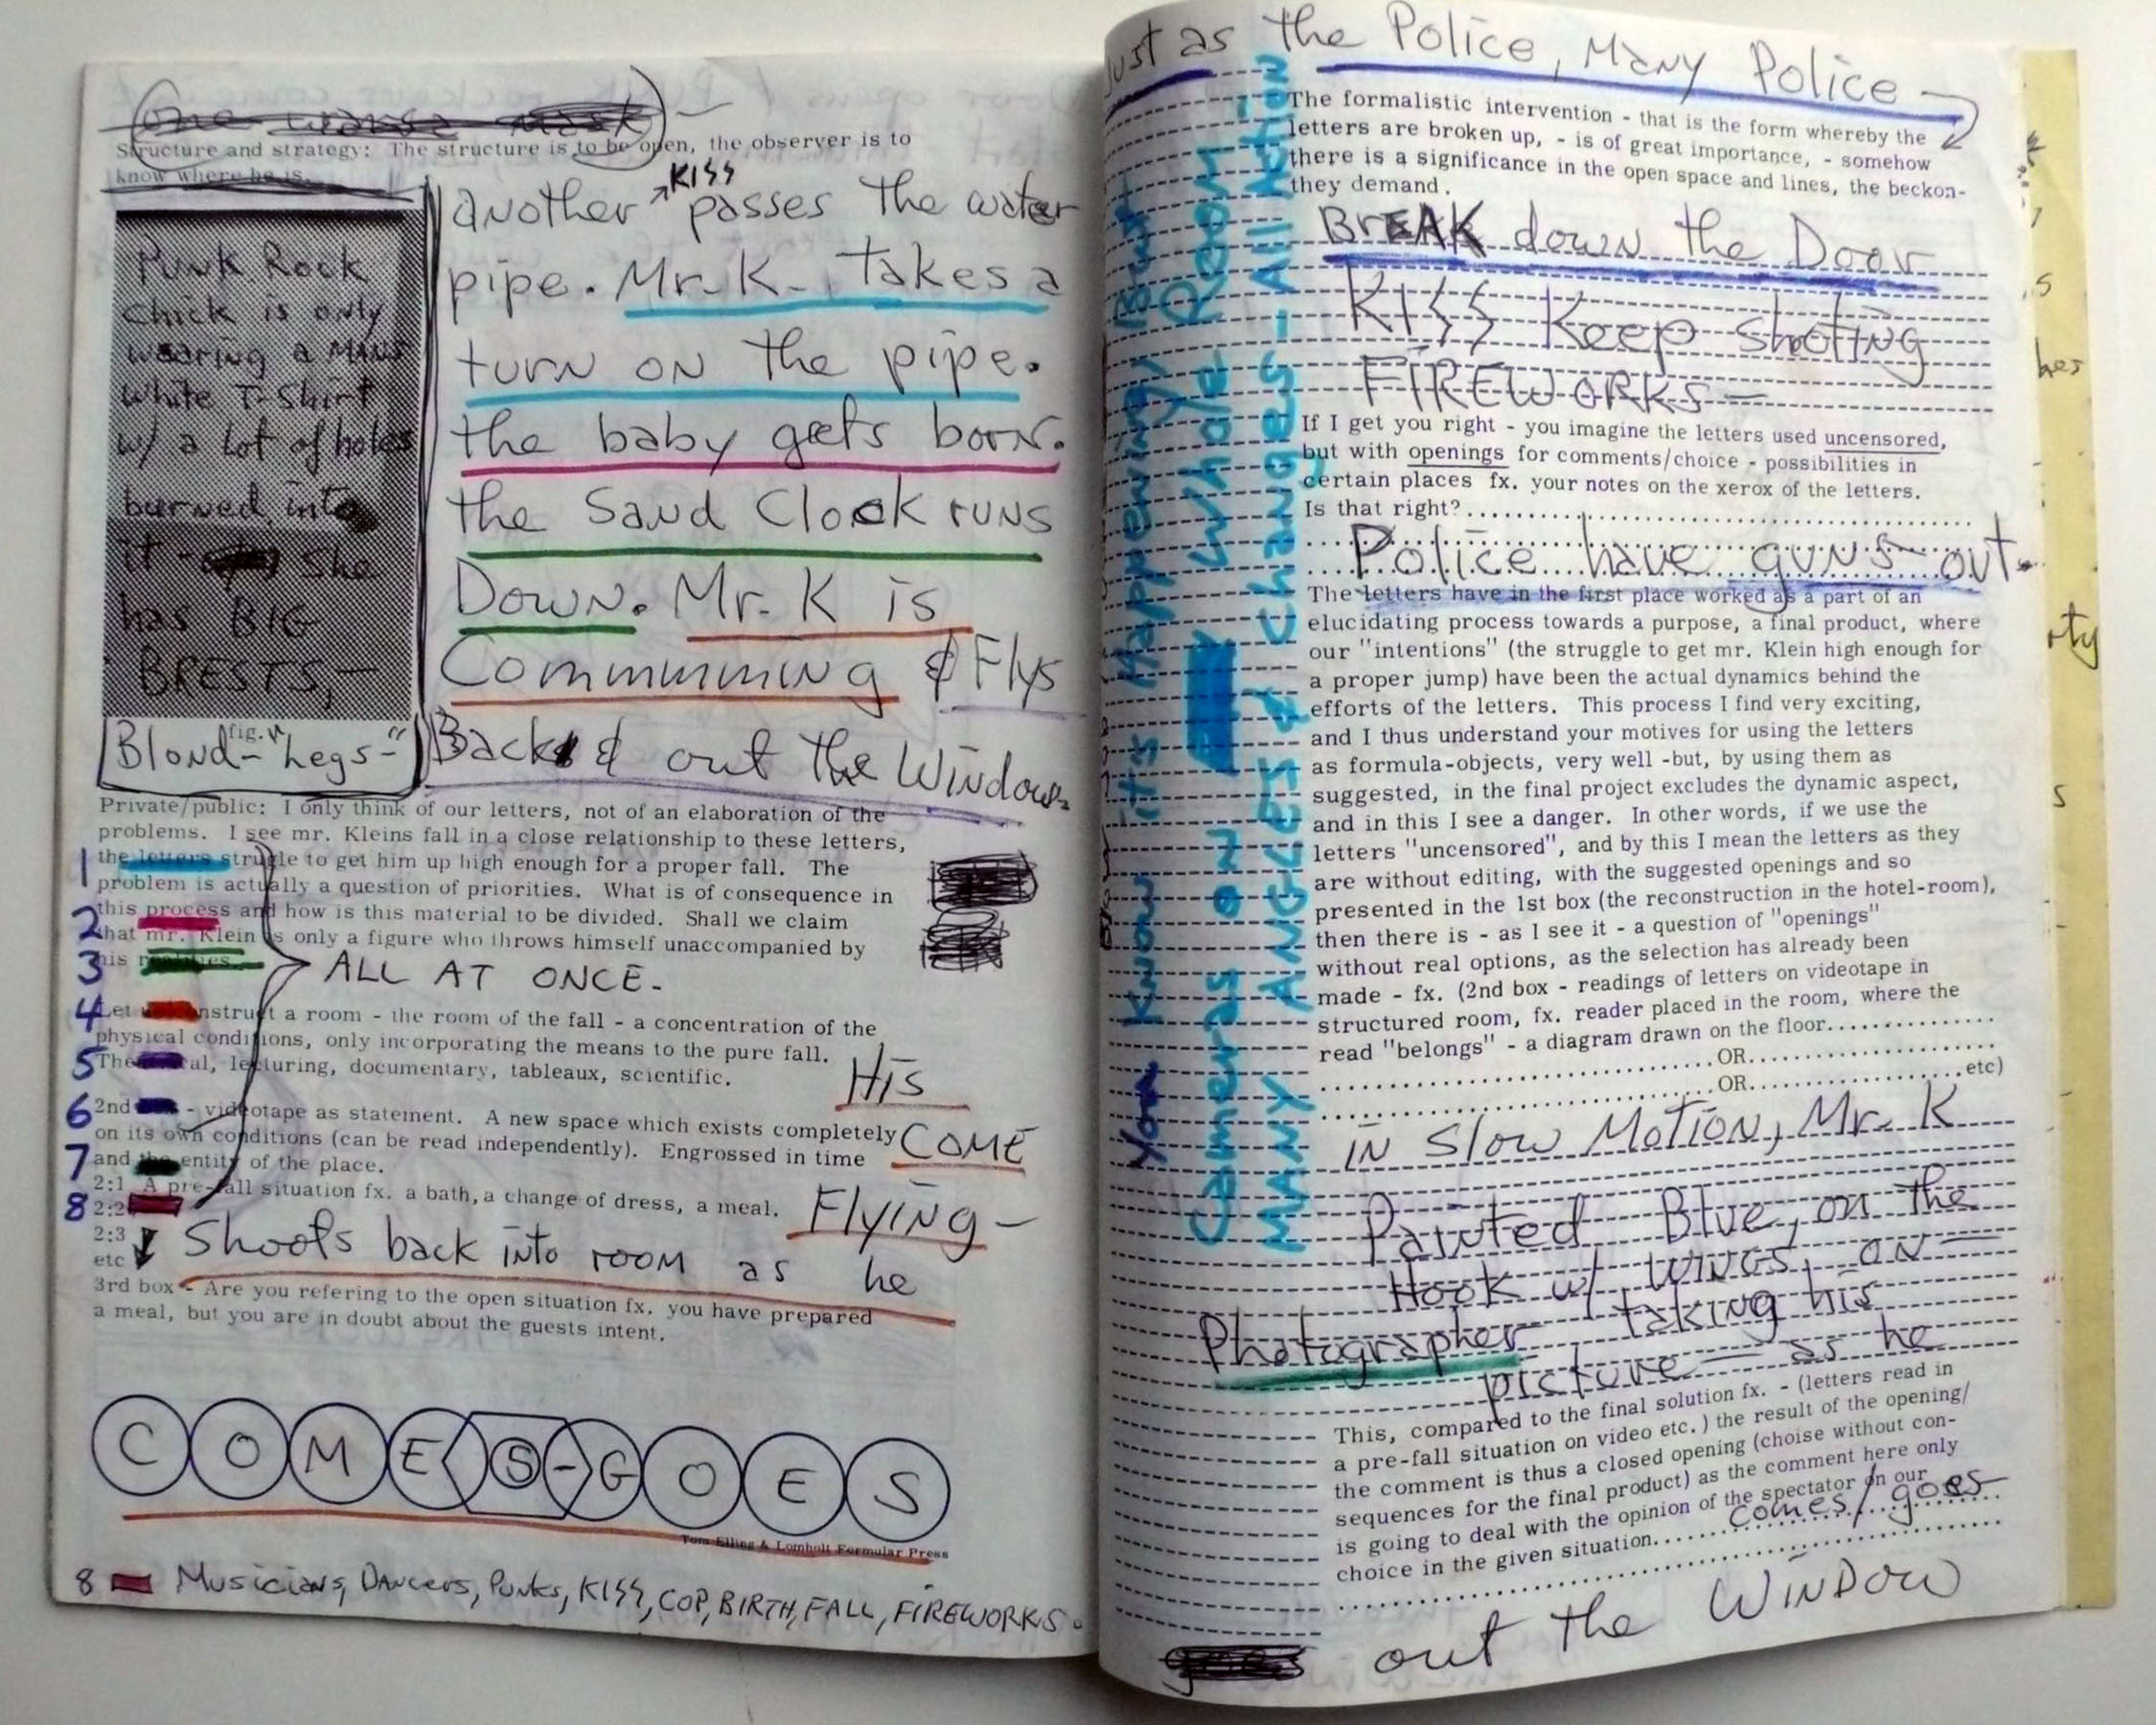 one
Structure and strategy: The structure is to be open, the observer is to
know where he is.
Punk Rock
chick is only
wearing a MANS
white T-Shirt
w/ a lot of holes
burned into
it - She
has BIG
BRESTS,-
fig.
Blond- "Legs-"
KISS
another passes the water
pipe. Mr. K. takes a
turn on the pipe.
the baby gets born.
the Sand Clock runs
Down. Mr. K is
Commumming & Flys
Back & out the Window.
Private/public: I only think of our letters, not of an elaboration of the
problems. I see mr. Kleins fall in a close relationship to these letters,
1 the letters strugle to get him up high enough for a proper fall. The
problem is actually a question of priorities. What is of consequence in
2 this process and how is this material to be divided. Shall we claim
that mr. Klein is only a figure who throws himself unaccompanied by
3 his
ALL AT ONCE.-
4 Let construct a room - the room of the fall - a concentration of the
physical conditions, only incorporating the means to the pure fall.
5 lecturing, documentary, tableaux, scientific.
His
6 2nd - videotape as statement. A new space which exists completely
on its own conditions (can be read independently). Engrossed in time
COME
7 and the entity of the place.
2:1 A pre-fall situation fx. a bath, a change of dress, a meal.
Flying -
8 2:2
2:3
etc
Shoots back into room as he
3rd box - Are you refering to the open situation fx. you have prepared
a meal, but you are in doubt about the guests intent.
COMES-GOES
Tom Elling & Lomholt Formular Press
8 Musicians, Dancers, Punks, KISS, COP, BIRTH, FALL, FIREWORKS.
Just as the Police, Many Police
The formalistic intervention - that is the form whereby the
letters are broken up, - is of great importance, - somehow
there is a significance in the open space and lines, the beckon-
they demand.
BREAK down the Door
KISS Keep shoting
FIREWORKS -
If I get you right - you imagine the letters used uncensored,
but with openings for comments/choice - possibilities in
certain places fx. your notes on the xerox of the letters.
Is that right?
Police have guns out.
The letters have in the first place worked as a part of an
elucidating process towards a purpose, a final product, where
our "intentions" (the struggle to get mr. Klein high enough for
a proper jump) have been the actual dynamics behind the
efforts of the letters. This process I find very exciting,
and I thus understand your motives for using the letters
as formula-objects, very well -but, by using them as
suggested, in the final project excludes the dynamic aspect,
and in this I see a danger. In other words, if we use the
letters "uncensored", and by this I mean the letters as they
are without editing, with the suggested openings and so
presented in the 1st box (the reconstruction in the hotel-room),
then there is - as I see it - a question of "openings"
without real options, as the selection has already been
made - fx. (2nd box - readings of letters on videotape in
structured room, fx. reader placed in the room, where the
read "belongs" - a diagram drawn on the floor
OR
OR etc)
in Slow Motion, Mr. K
Painted Blue, on the
Hook w/ wings, on -
Photographer taking his
picture - as he
This, compared to the final solution fx. - (letters read in
a pre-fall situation on video etc.) the result of the opening/
the comment is thus a closed opening (choise without con-
sequences for the final product) as the comment here only
is going to deal with the opinion of the spectator on our
choice in the given situation.
comes/goes
out the WINDOW
You Know its Happening, But
Cameras on Whole Room
MANY ANGLES & changes - All Action
hes
rty
s